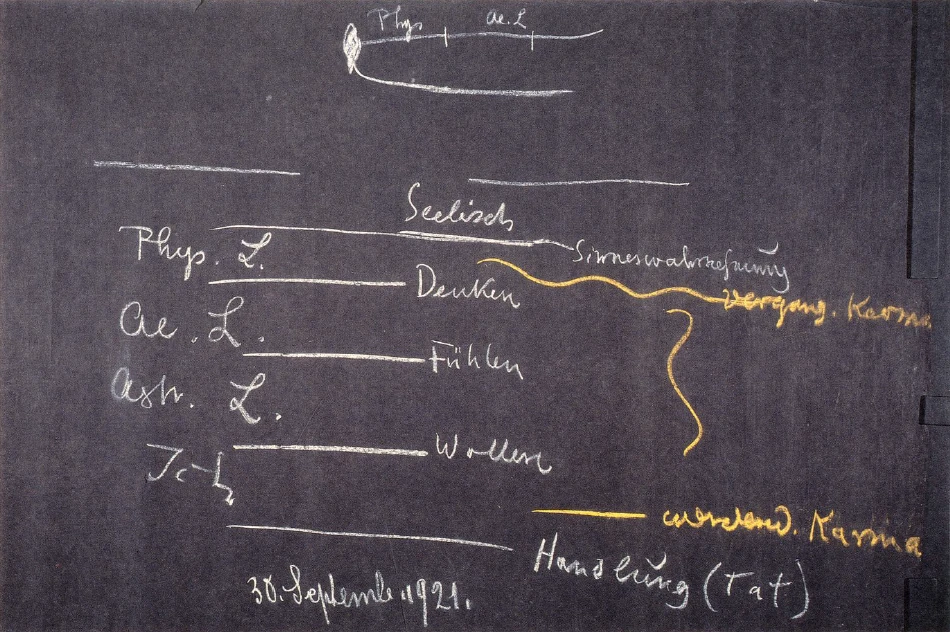 Phys. ae. L
Seelisch
Sinneswahrnehmung
Phys. L.
Denken
vergang. Karma
Ae. L.
Fühlen
Astr. L.
Wollen
Ich
werdend. Karma
Handlung (Tat)
30. September 1921.